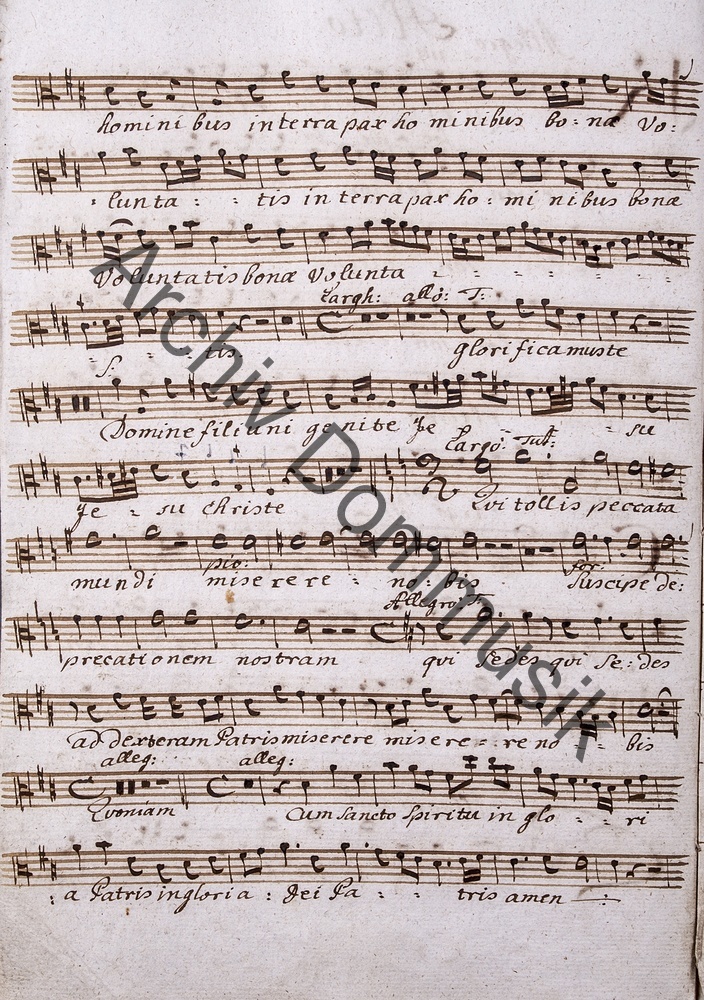 homini bus in terra pax ho minibus bo: næ Vo:
: lunta : : tis in terra pax ho: mi nibus bonæ
Voluntatis bonæ Volunta - : : : : :
Largh: allo: T:
: S: : : tis. glorificamuste
Domine fili uni ge nite Je : : su
Largo: Tutt:
Je : su Christe Qui tollis peccata
pio: for:
mundi miserere : no : bis Suscipe de:
Allegro: T:
precationem nostram qui sedes qui se: des
ad dexteram Patris miserere misere : : re no : : bis
alleg: alleg:
Quoniam Cum Sancto Spiritu in glo : : ri
: a Patris in gloria : Dei Pa : : tris amen
Archiv Dommusik